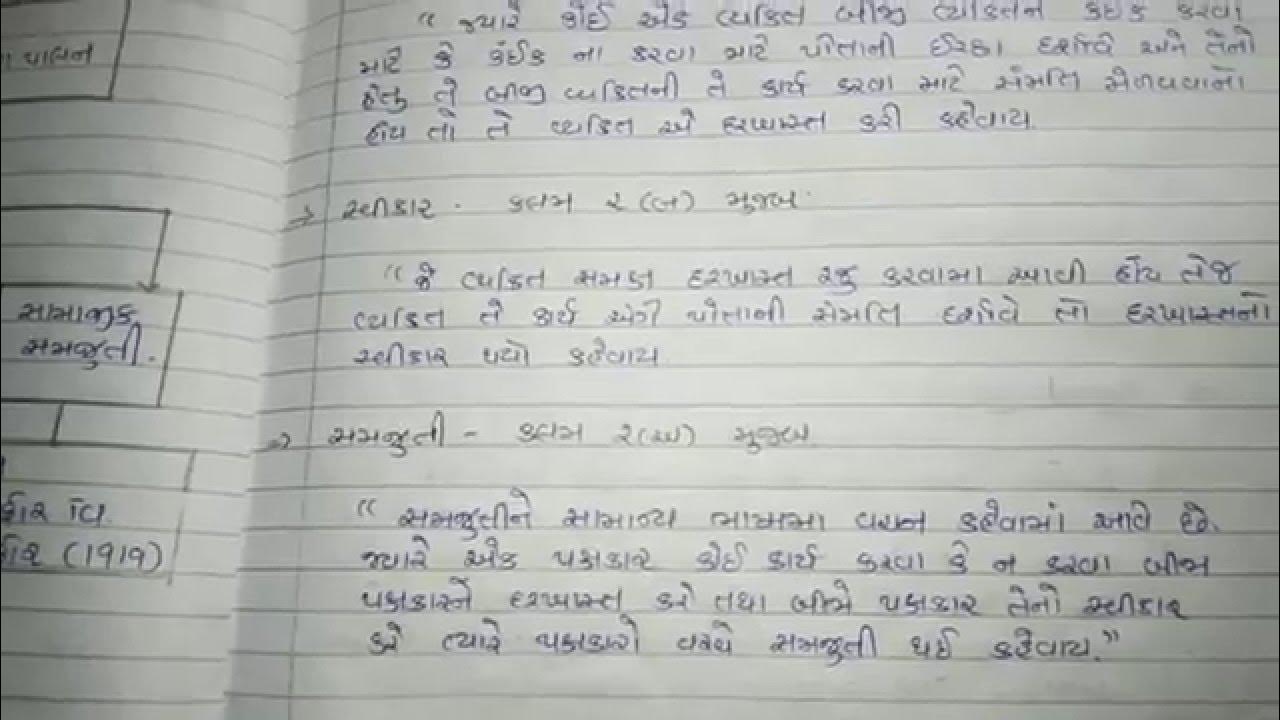 ા પાલન
સામાજીક
સમજુતી.
(1919)
“ જ્યારે કોઈ એક વ્યકિત બીજી વ્યકિતને કઇંક કરવા
માટે કે કંઈક ના કરવા માટે પોતાની ઈચ્છા દર્શાવે અને તેનો
હેતુ તે બીજી વ્યકિતની તે કાર્ય કરવા માટે સંમતિ મેળવવાનો
હોય તો તે વ્યકિત એ દરખાસ્ત કરી કહેવાય.
→ સ્વીકાર - કલમ ૨ (બ) મુજબ
“ જે વ્યકિત સમક્ષ દરખાસ્ત રજુ કરવામા આવી હોય તેજ
વ્યકિત તે કાર્ય અંગે પોતાની સંમતિ દર્શાવે તો દરખાસ્તનો
સ્વીકાર થયો કહેવાય.
→ સમજુતી - કલમ ૨(અ) મુજબ
“ સમજુતીને સામાન્ય ભાષામા વચન કહેવામાં આવે છે.
જ્યારે એક પક્ષકાર કોઈ કાર્ય કરવા કે ન કરવા બીજા
પક્ષકારને દરખાસ્ત કરે તથા બીજો પક્ષકાર તેનો સ્વીકાર
કરે ત્યારે પક્ષકારો વચ્ચે સમજુતી થઈ કહેવાય.”